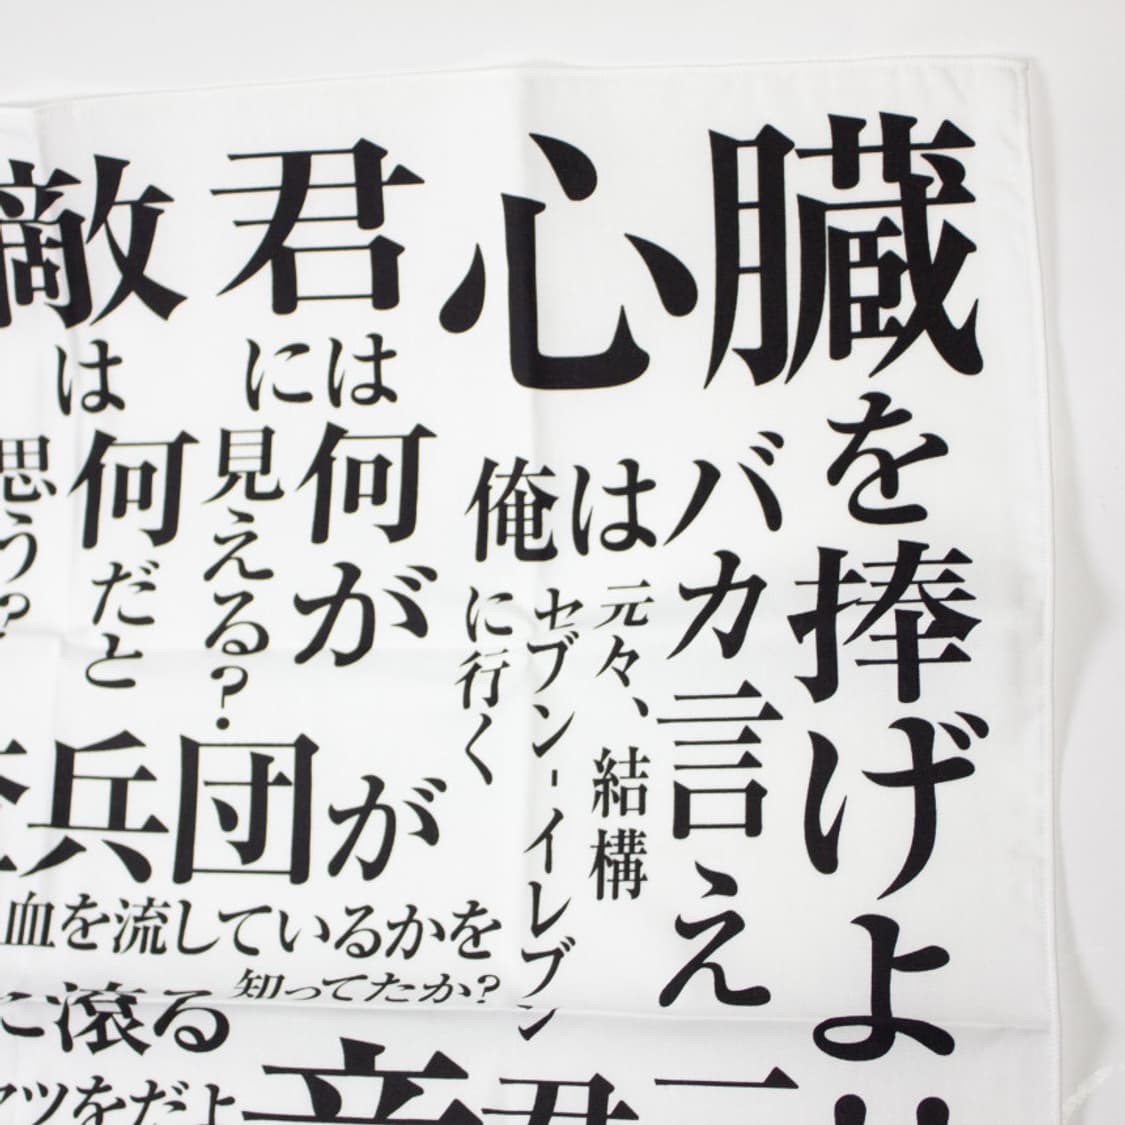 心臓
を捧げよ
バカ言え
俺は
元々、結構
セブン-イレブン
に行く
君
には
何が
見える?
敵
は
何
だと
思う?
兵団が
血を流しているかを
知ってたか?
に滾る
ヤツをだよ
君